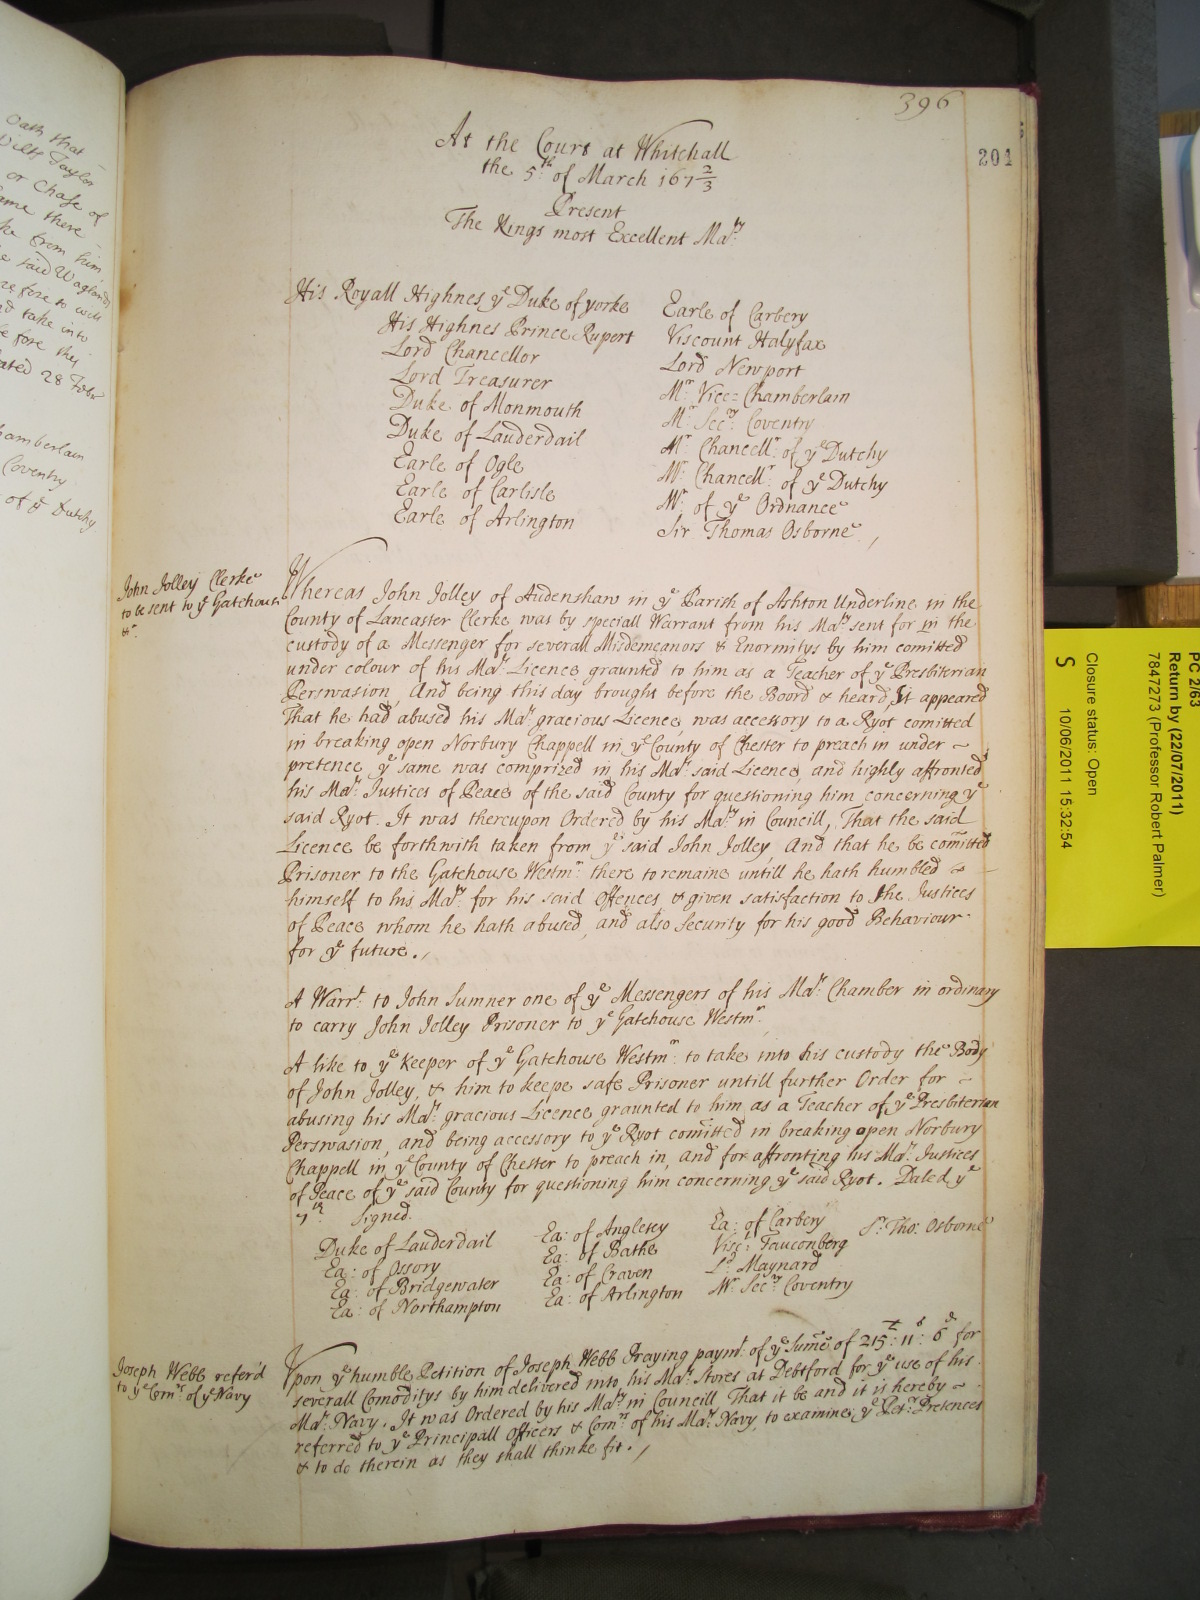 396
201
At the Court at Whitehall
the 5th of March 167 2/3
Present
The Kings most Excellent Maty
His Royall Highnes ye Duke of yorke
His Highnes Prince Rupert
Lord Chancellor
Lord Treasurer
Duke of Monmouth
Duke of Lauderdail
Earle of Ogle
Earle of Carlisle
Earle of Arlington
Earle of Carbery
Viscount Halyfax
Lord Newport
Mr Vice=Chamberlain
Mr Secry Coventry
Mr Chancellr of ye Dutchy
Mr Chancellr of ye Dutchy
Mr of ye Ordnance
Sir Thomas Osborne
John Jolley Clerke
to be sent to ye Gatehouse
&c.
Whereas John Jolley of Audenshaw in ye Parish of Ashton Underline in the
County of Lancaster Clerke was by speciall Warrant from his Maty sent for in the
custody of a Messenger for severall Misdemeanors & Enormitys by him comitted
under colour of his Mats Licence graunted to him as a Teacher of ye Presbiterian
Perswasion, And being this day brought before the Boord & heard, it appeared
That he had abused his Mats gracious Licence, was accessory to a Ryot comitted
in breaking open Norbury Chappell in ye County of Chester to preach in under ~
pretence ye same was comprized in his Mats said Licence, and highly affronted
his Mats Justices of Peace of the said County for questioning him concerning ye
said Ryot. It was thereupon Ordered by his Maty in Councill, That the said
Licence be forthwith taken from ye said John Jolley, And that he be comitted
Prisoner to the Gatehouse Westmr there to remaine untill he hath humbled ~
himself to his Maty for his said Offences & given satisfaction to the Justices
of Peace whom he hath abused, and also Security for his good Behaviour
for ye future.
A Warrt to John Sumner one of ye Messengers of his Mats Chamber in ordinary
to carry John Jolley Prisoner to ye Gatehouse Westmr
A like to ye Keeper of ye Gatehouse Westmr to take into his custody the Body
of John Jolley, & him to keepe safe Prisoner untill further Order for ~
abusing his Mats gracious Licence graunted to him as a Teacher of ye Presbiterian
Perswasion, and being accessory to ye Ryot comitted in breaking open Norbury
Chappell in ye County of Chester to preach in, and for affronting his Mats Justices
of Peace of ye said County for questioning him concerning ye said Ryot. Dated ye
7th Signed.
Duke of Lauderdail
Ea: of Ossory
Ea: of Bridgewater
Ea: of Northampton
Ea: of Anglesey
Ea: of Bathe
Ea: of Craven
Ea: of Arlington
Ea: of Carbery
Visct Fauconberg
Ld Maynard
Mr Secry Coventry
Sr Tho: Osborne
Joseph Webb referd
to ye Comrs of ye Navy
Vpon ye humble Petition of Joseph Webb Praying paymt of ye Sume of 215l: 11s: 6d for
severall Comoditys by him delivered into his Mats Stores at Debtford for ye use of his
Mats Navy, It was Ordered by his Maty in Councill That it be and it is hereby ~
referred to ye Principall Officers & Comrs of his Mats Navy, to examine ye Petrs Pretences
& to do therein as they shall thinke fit.
Oath that
or Chase of
ame there
ke from him
e said
d take into
be fore this
ated 28
hamberlain
Coventry
of ye Dutchy
PC 2/63
Return by (22/07/2011)
7847273 (Professor Robert Palmer)
Closure status: Open
S 10/06/2011 15:32:54